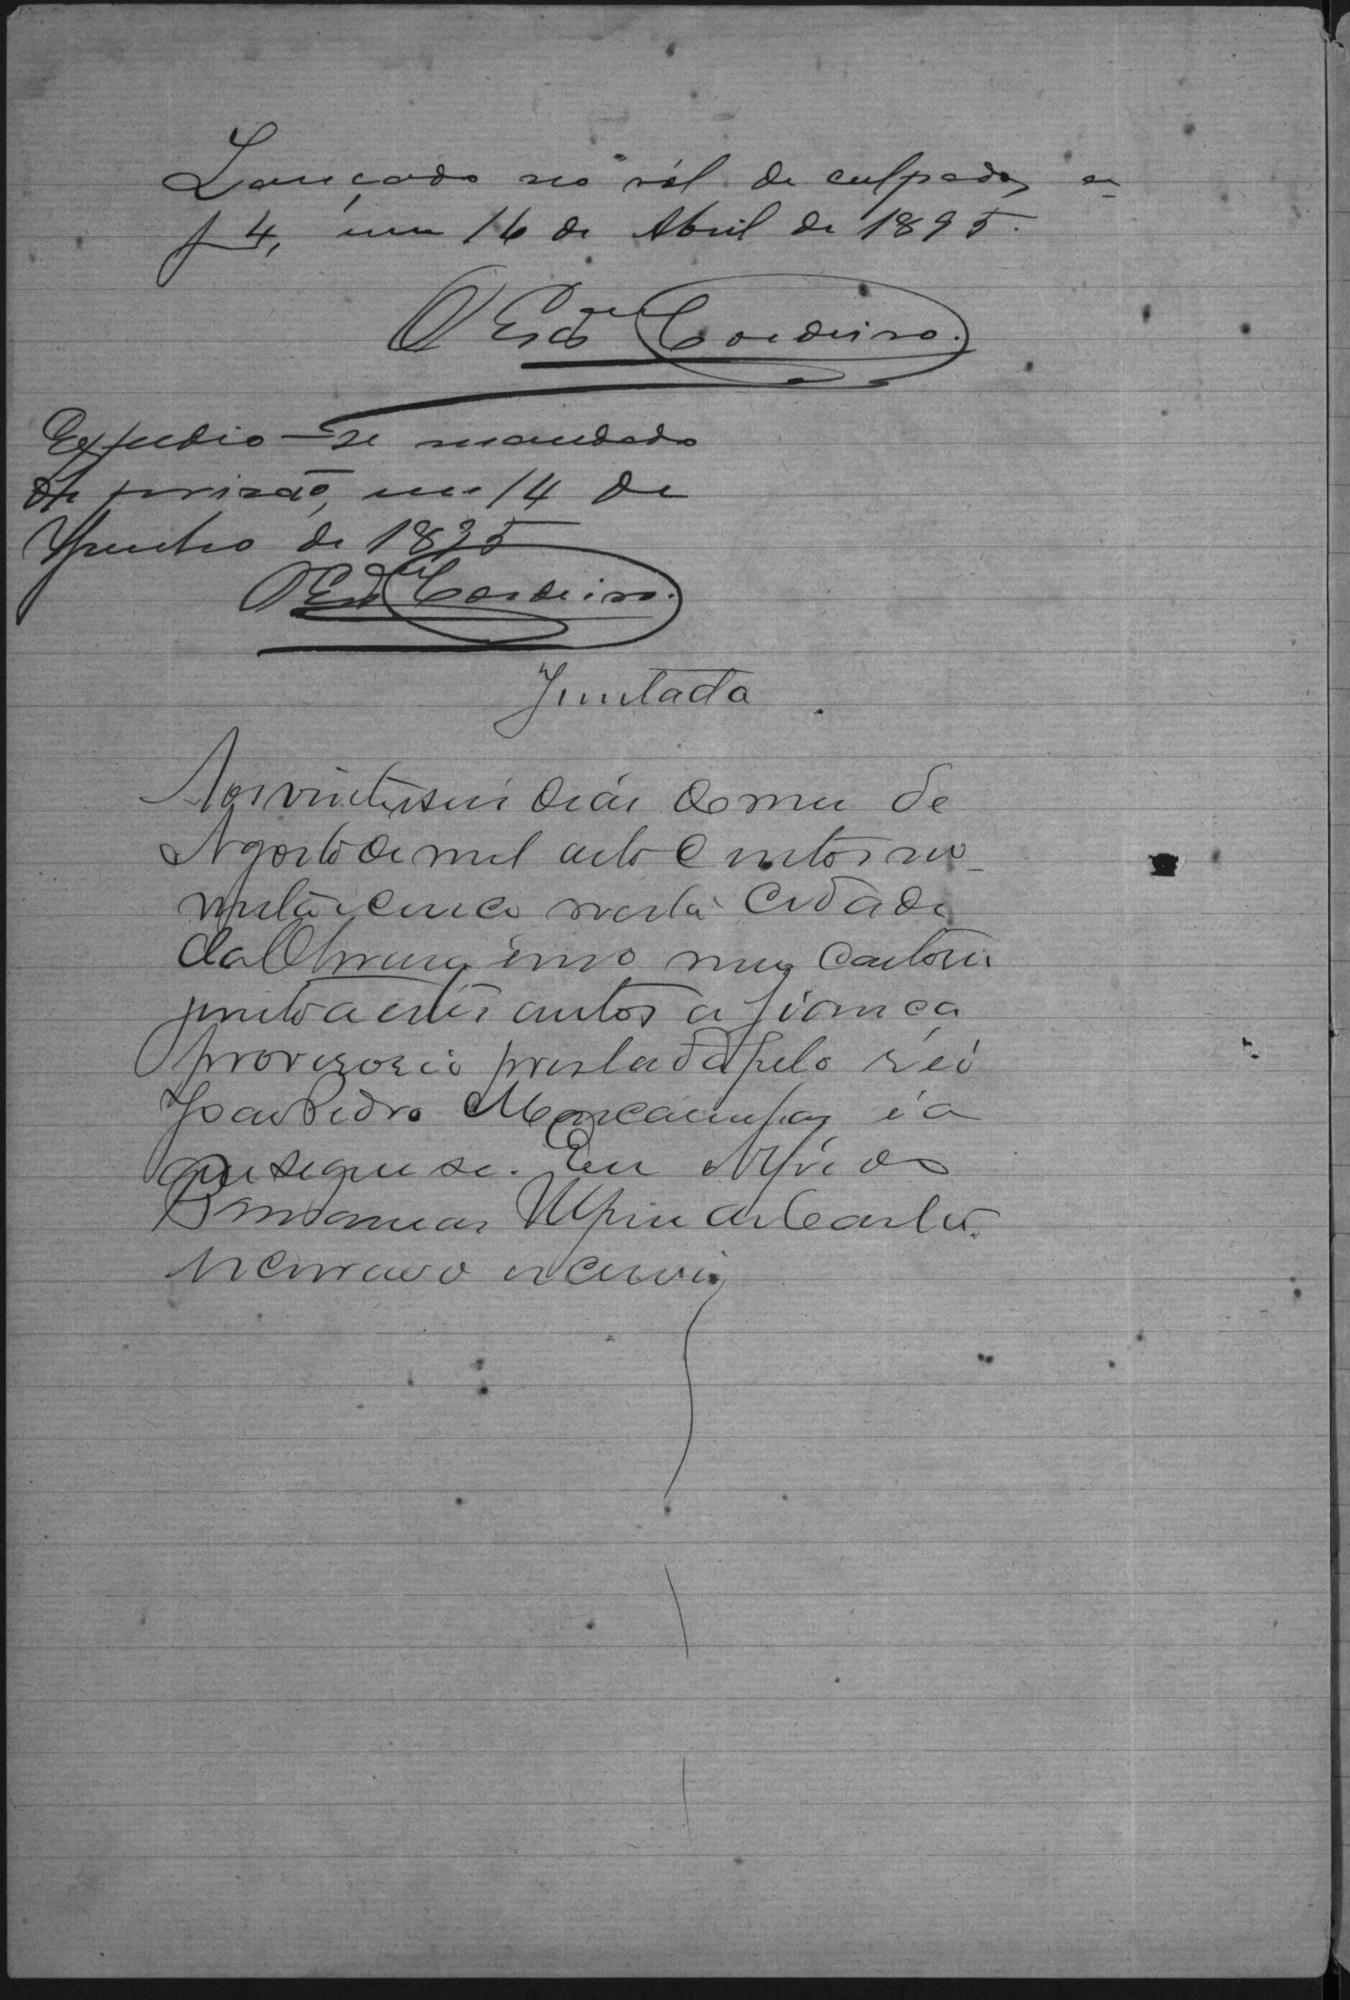 Lançado no ról de culpados, a
f 4, em 16 de Abril de 1895.
O Escr.am Cordeiro.
Expedio-se mandado
de prizão, em 14 de
Junho de 1895
O Escr.am Cordeiro.
Juntada
Aos vinteseis dias do mez de
Agosto de mil oito centos no-
venta e cinco nesta Cidade
da em meu cartorio
junto a estes autos a fiança
provisoria prestada pelo réo
João Pedro é a
que segue se. Eu Alfredo
de Castro
escrivão escrevi